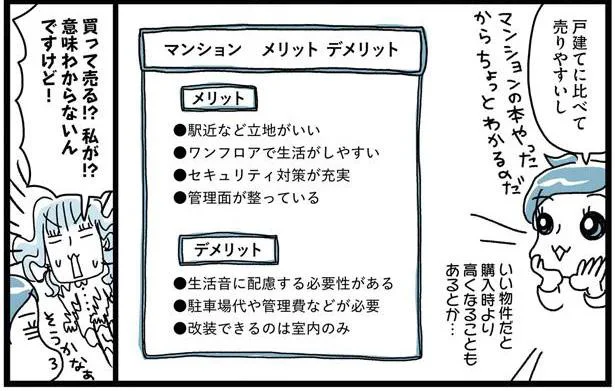 戸建てに比べて
売りやすいし
マンションの本やった
からちょっとわかるのだ
いい物件だと
購入時より
高くなることも
あるとか…
マンション メリット デメリット
メリット
●駅近など立地がいい
●ワンフロアで生活がしやすい
●セキュリティ対策が充実
●管理面が整っている
デメリット
●生活音に配慮する必要性がある
●駐車場代や管理費などが必要
●改装できるのは室内のみ
買って売る!? 私が!?
意味わからないん
ですけど!
そうかなぁ